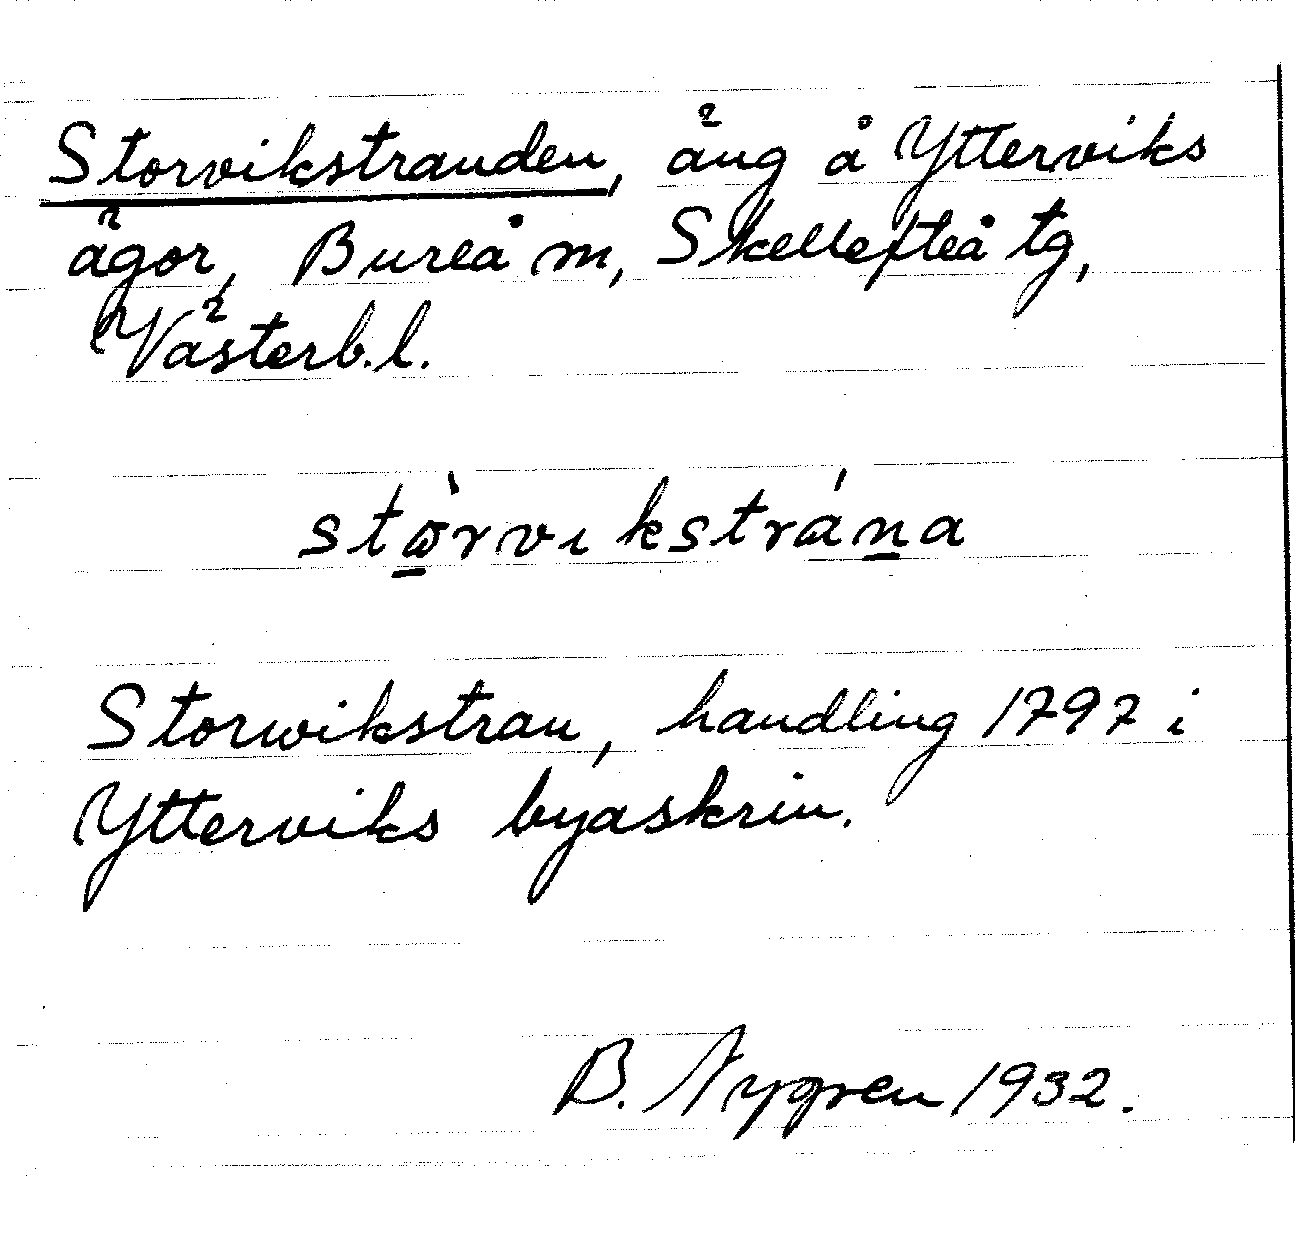 Storvikstranden, äng å Ytterviks
ägor, Bureå m, Skellefteå tg,
Västerb.l.
stὼ̲rvıkstrán̲a
Storwikstran, handling 1797 i
Ytterviks byaskrin.
B. Nygren 1932.